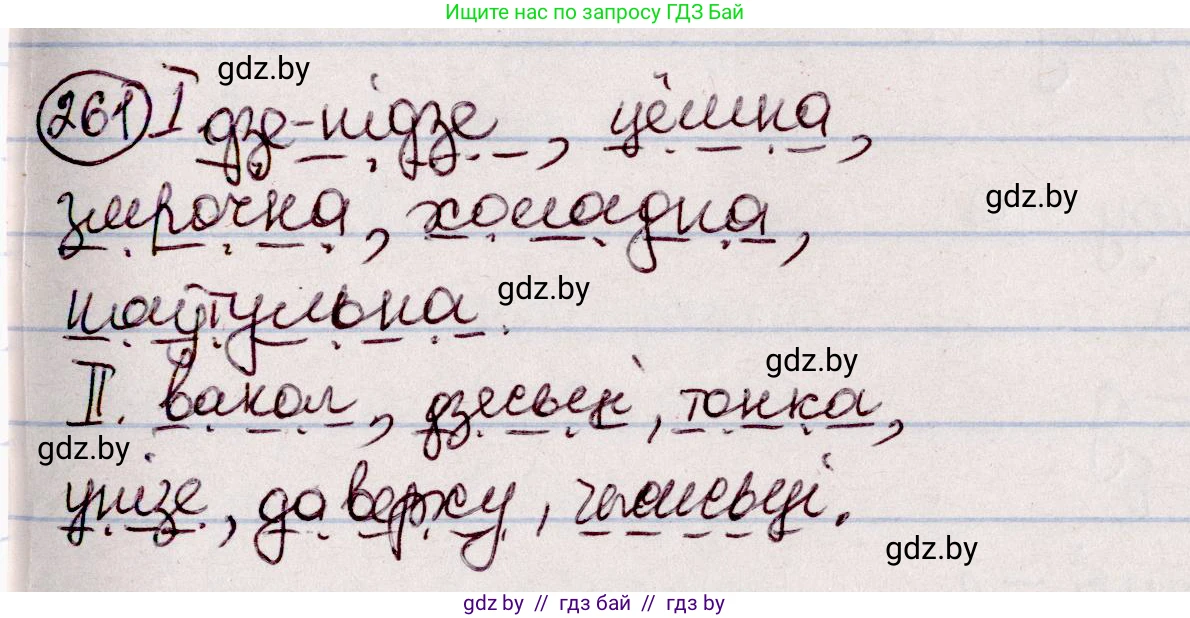 Ищите нас по запросу ГДЗ Бай
gdz.by
261 I дзе-нідзе, цёмна,
змрочна, холадна,
gdz.by
наўтульна.
gdz.by
gdz.by
II. вакол, дзесьці, тонка,
gdz.by
унізе, даверху,
gdz.by
gdz by // гдз бай // гдз by